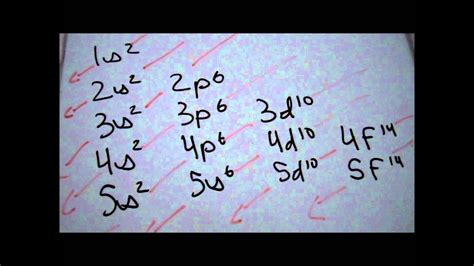 1s²
2s² 2p⁶
3s² 3p⁶ 3d¹⁰
4s² 4p⁶ 4d¹⁰ 4f¹⁴
5s² 5s⁶ 5d¹⁰ 5f¹⁴